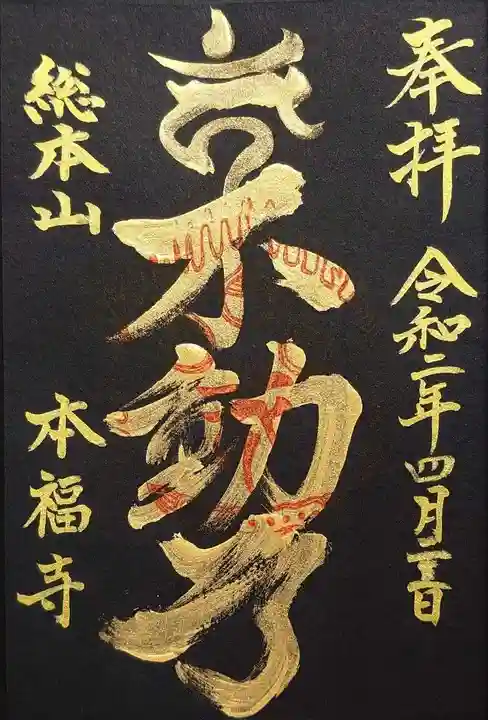 奉拝 令和二年四月三日
不動尊
総本山 本福寺